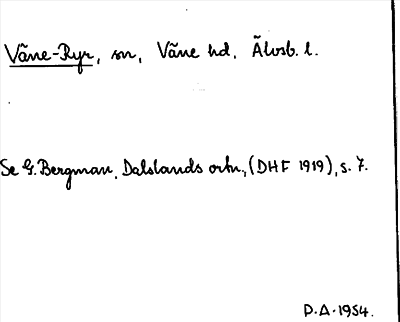 Väne-Ryr, sn, Väne hd, Älvsb. l.
Se G. Bergman, Dalslands ortn., (DHF 1919), s. 7.
D.A. 1954.